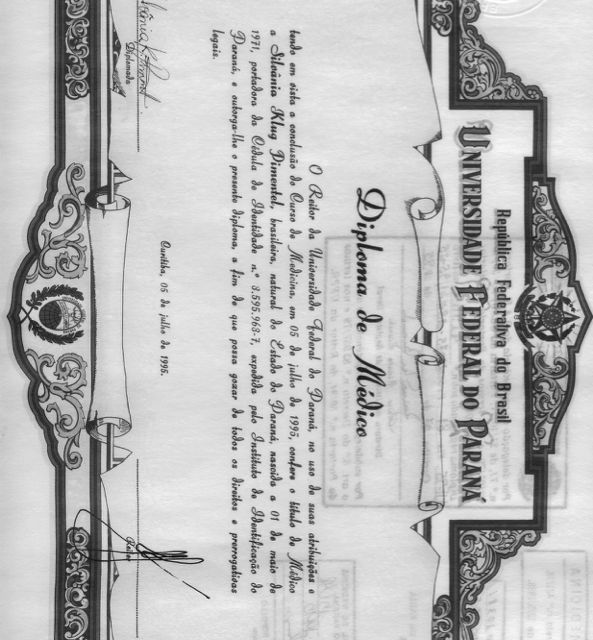 República Federativa do Brasil
UNIVERSIDADE FEDERAL DO PARANÁ
Diploma de Médico
O Reitor da Universidade Federal do Paraná, no uso de suas atribuições e
tendo em vista a conclusão do Curso de Medicina, em 05 de julho de 1995, confere o título de Médico
a Silvânia Klug Pimentel, brasileira, natural do Estado do Paraná, nascida a 01 de maio de
1971, portadora da Cédula de Identidade n.º 3.595.963-7, expedida pelo Instituto de Identificação do
Paraná, e outorga-lhe o presente diploma, a fim de que possa gozar de todos os direitos e prerrogativas
legais.
Curitiba, 05 de julho de 1995.
Diplomada
Reitor